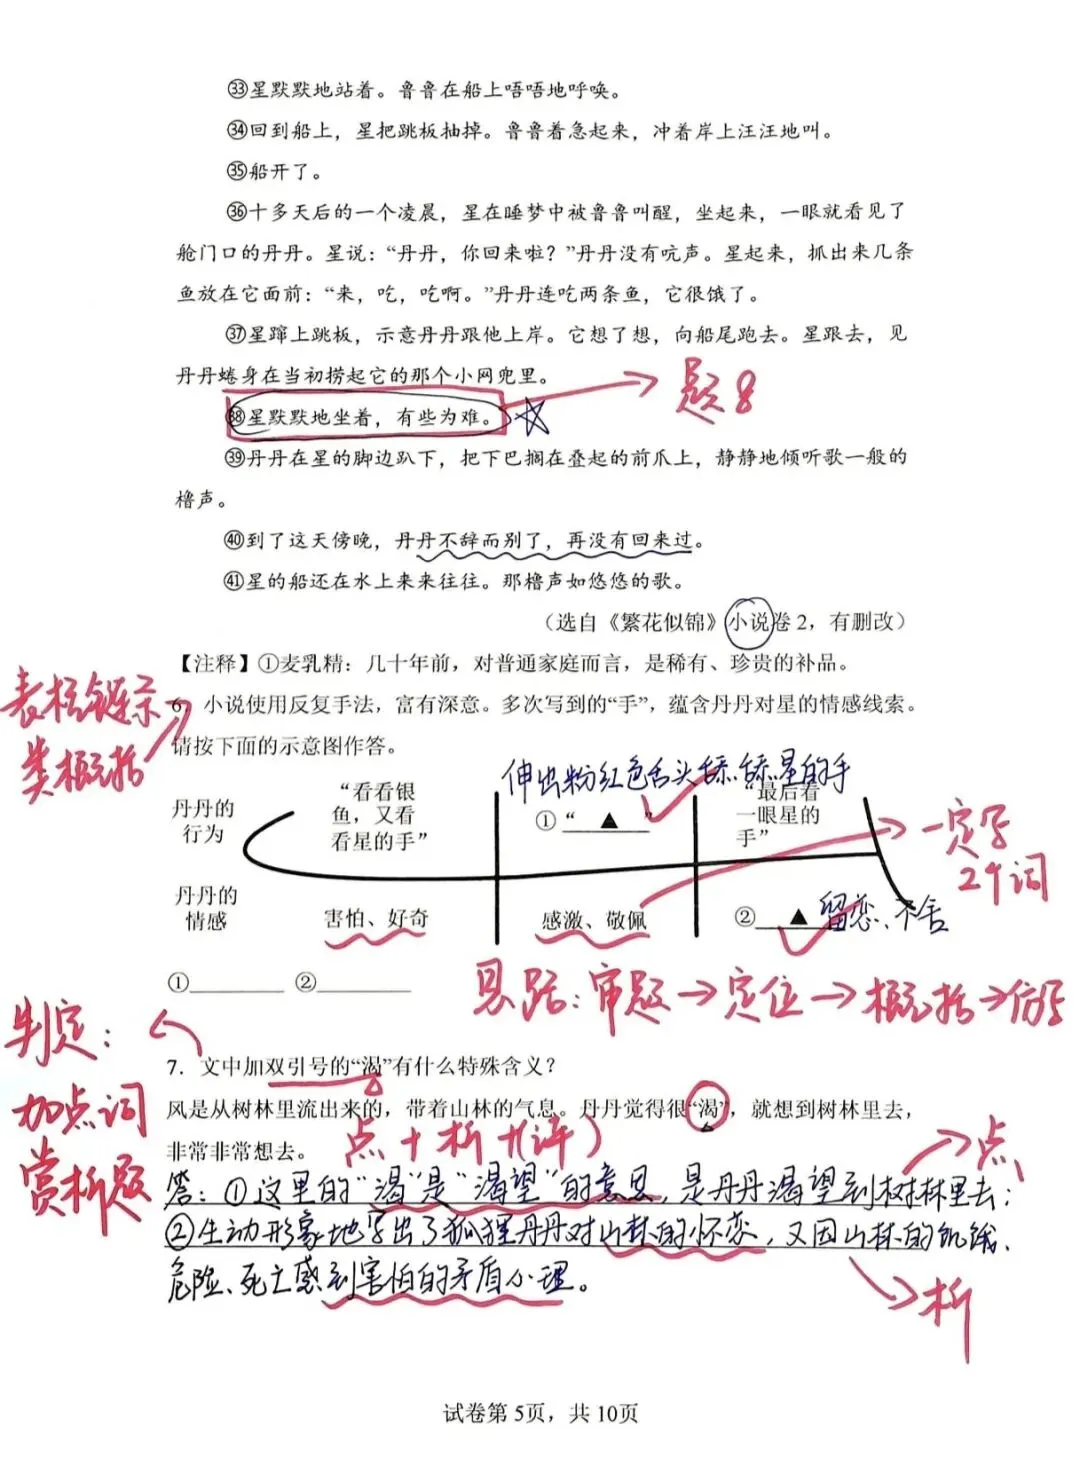 ㉝星默默地站着。鲁鲁在船上唔唔地呼唤。
㉞回到船上，星把跳板抽掉。鲁鲁着急起来，冲着岸上汪汪地叫。
㉟船开了。
㊱十多天后的一个凌晨，星在睡梦中被鲁鲁叫醒，坐起来，一眼就看见了
舱门口的丹丹。星说：“丹丹，你回来啦？”丹丹没有吭声。星起来，抓出来几条
鱼放在它面前：“来，吃，吃啊。”丹丹连吃两条鱼，它很饿了。
㊲星蹿上跳板，示意丹丹跟他上岸。它想了想，向船尾跑去。星跟去，见
丹丹蜷身在当初捞起它的那个小网兜里。
题8
㊳星默默地坐着，有些为难。
㊴丹丹在星的脚边趴下，把下巴搁在叠起的前爪上，静静地倾听歌一般的
橹声。
㊵到了这天傍晚，丹丹不辞而别了，再没有回来过。
㊶星的船还在水上来来往往。那橹声如悠悠的歌。
（选自《繁花似锦》小说卷2，有删改）
【注释】①麦乳精：几十年前，对普通家庭而言，是稀有、珍贵的补品。
表格链示
类概括
6．小说使用反复手法，富有深意。多次写到的“手”，蕴含丹丹对星的情感线索。
请按下面的示意图作答。
伸出粉红色舌头舔舔星的手
丹丹的
行为
“看看银
鱼，又看
看星的手”
①“▲”
“最后看
一眼星的
手”
一定写
2个词
丹丹的
情感
害怕、好奇
感激、敬佩
②▲留恋、不舍
①________ ②________
思路：审题→定位→概括→仿写
判定：
加点词
赏析题
7．文中加双引号的“渴”有什么特殊含义？
风是从树林里流出来的，带着山林的气息。丹丹觉得很“渴”，就想到树林里去，
非常非常想去。
点+析+（评）
点
答：①这里的“渴”是“渴望”的意思，是丹丹渴望到树林里去；
②生动形象地写出了狐狸丹丹对山林的怀恋，又因山林的饥饿、
危险、死亡感到害怕的矛盾心理。
析
试卷第 5页，共 10页